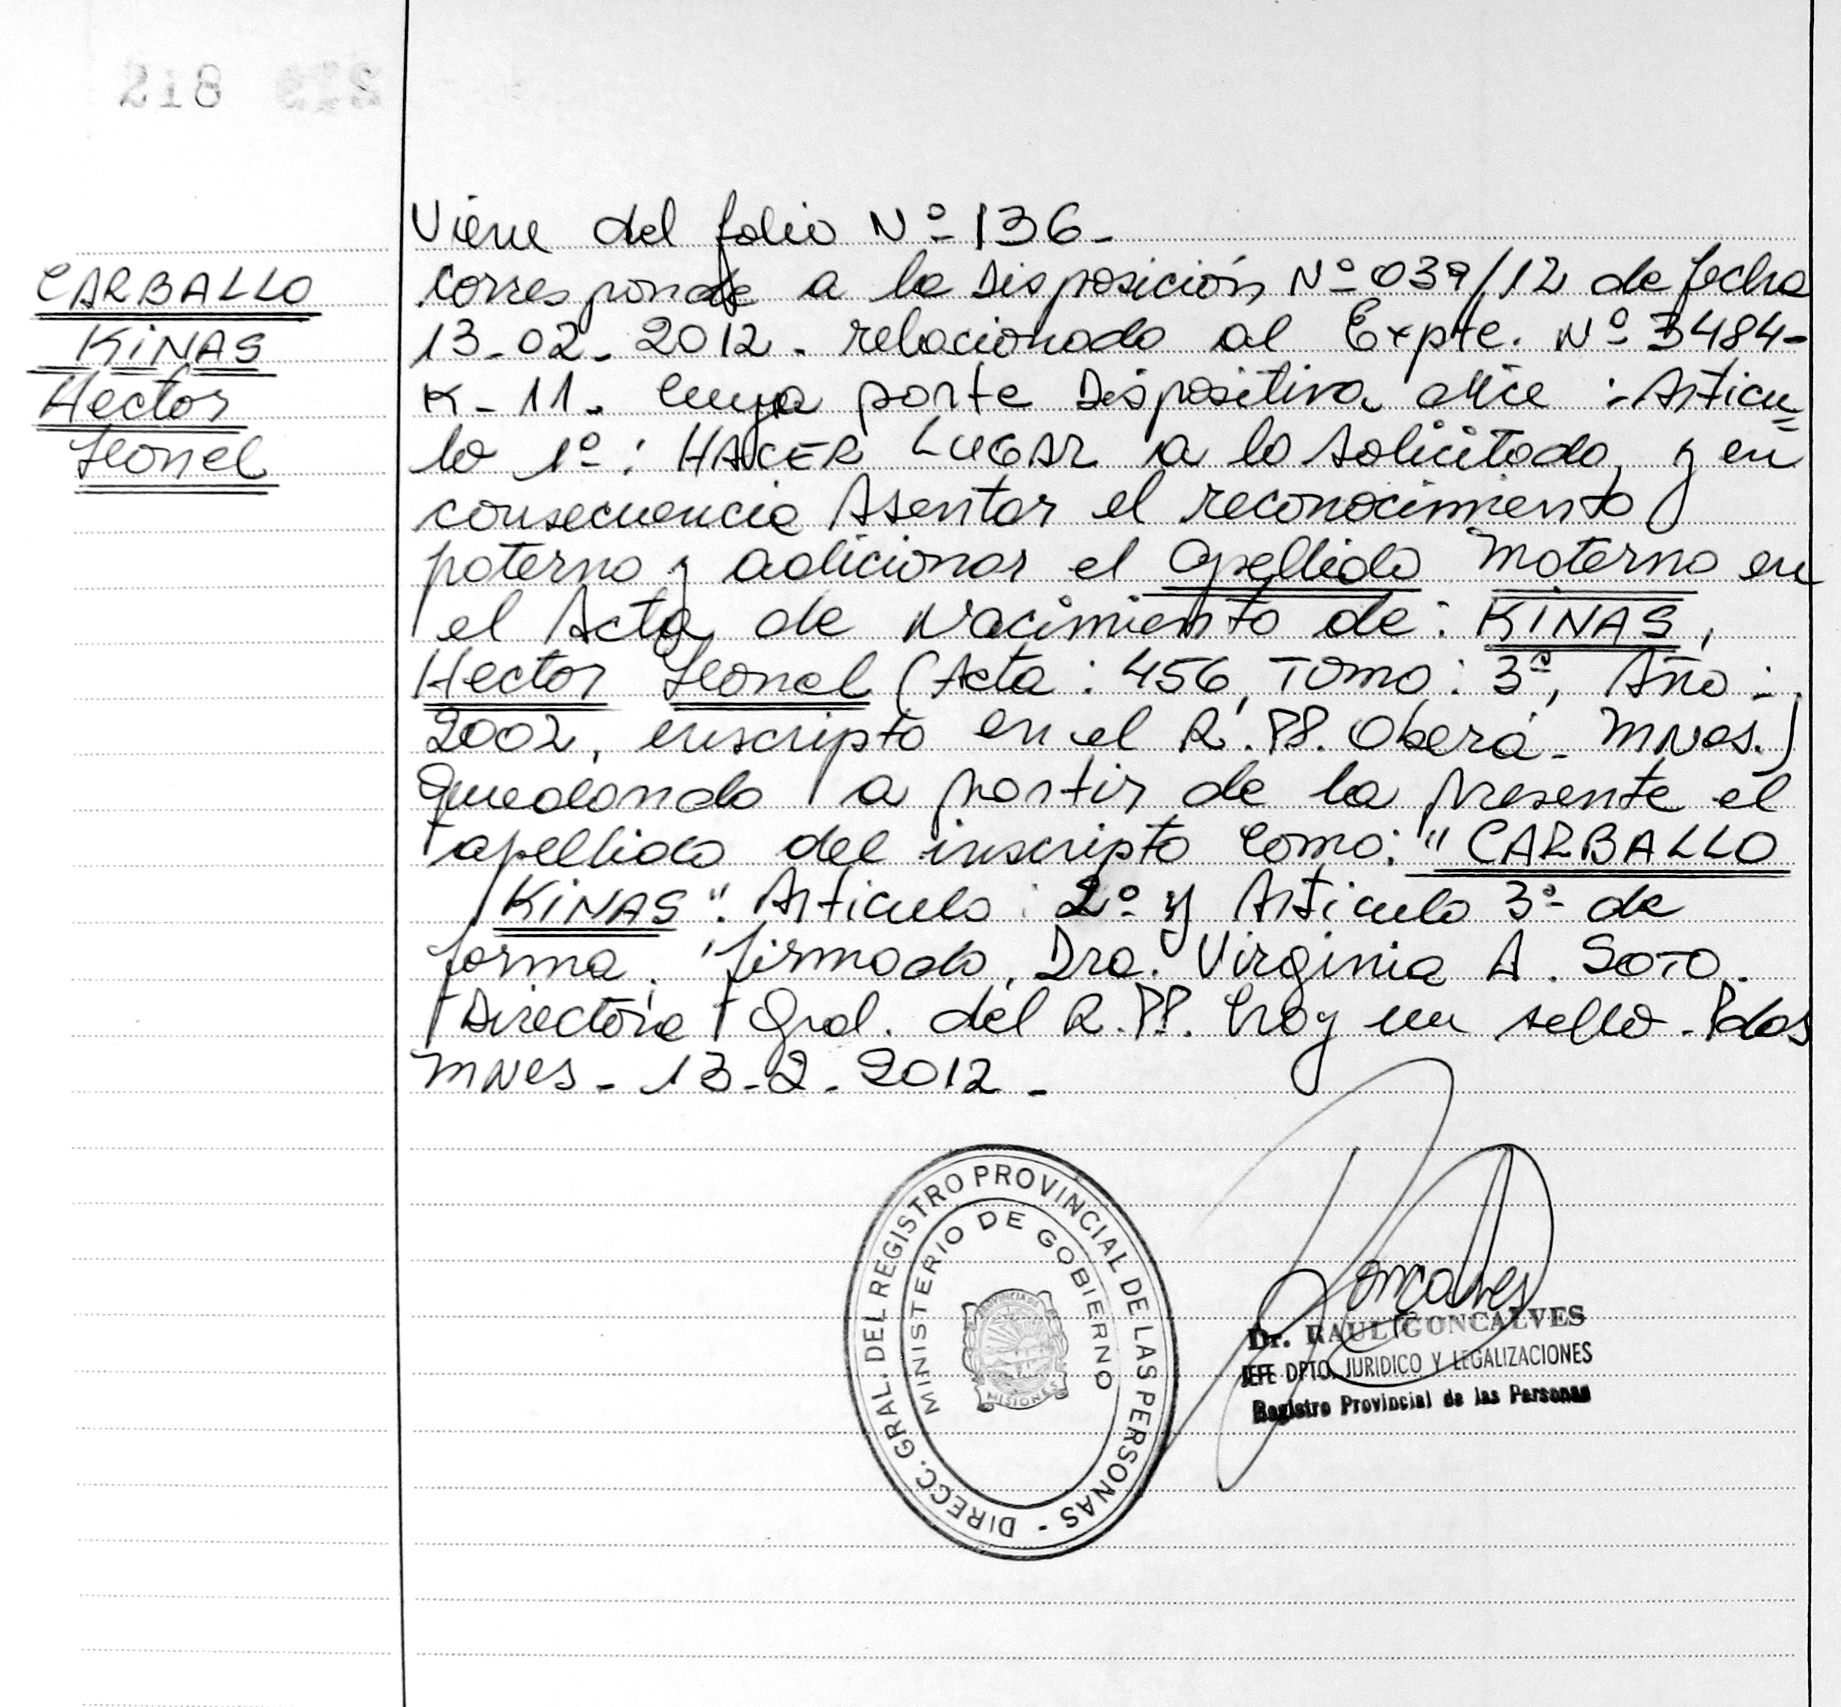 218
CARBALLO
KINAS
Hector
Leonel
Viene del folio Nº 136-
corresponde a la Disposición Nº 039/12 de fecha
13-02-2012. relacionado al Expte. Nº 3484-
K-11. cuya parte Dispositiva dice :-Articu=
lo 1º: HACER LUGAR a lo solicitado, y en
consecuencia Asentar el reconocimiento
paterno y adicionar el apellido Materno en
el Acta de Nacimiento de: KINAS,
Hector Leonel (Acta: 456, TOMO: 3º, Año:
2002, inscripto en el R.PP. Oberá- MNes.)
quedando a partir de la presente el
apellido del inscripto como: "CARBALLO
KINAS". Articulo: 2º y Articulo 3º de
forma. firmado, Dra. Virginia A. SOTO.
Directora Gral. del R.PP. hay un sello-Pdas
MNes- 13-2-2012-
DIRECC. GRAL. DEL REGISTRO PROVINCIAL DE LAS PERSONAS -
MINISTERIO DE GOBIERNO
PROVINCIA DE
MISIONES
Goncalves
Dr. RAUL GONCALVES
JEFE DPTO. JURIDICO Y LEGALIZACIONES
Registro Provincial de las Personas